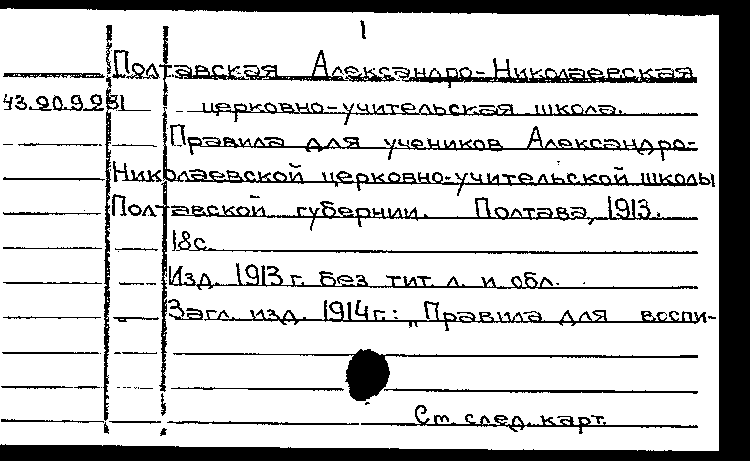 1
Полтавская Александро-Николаевская
43.20.9.231 церковно-учительская школа.
Правила для учеников Александро-
Николаевской церковно-учительской школы
Полтавской губернии. Полтава, 1913.
18с.
Изд. 1913 г. без тит. л. и обл.
Загл. изд. 1914г.: „Правила для воспи-
Ст. след. карт.